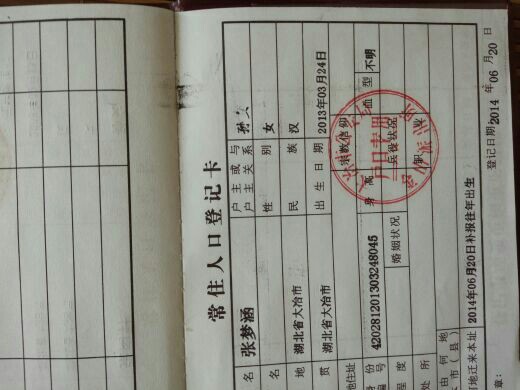 常住人口登记卡
名 张梦涵 户主或与户主关系 孙
名 性别 女
地 湖北省大冶市 民族 汉
贯 湖北省大冶市 出生日期 2013年03月24日
地住址 宗教信仰
份编号 420281201303248045 身高 血型 不明
程度 婚姻状况 兵役状况
处所 职业
由何地
市(县) 2014年06月20日补报往年出生
地迁来本址
章: 登记日期:2014年06月20日
户口专用